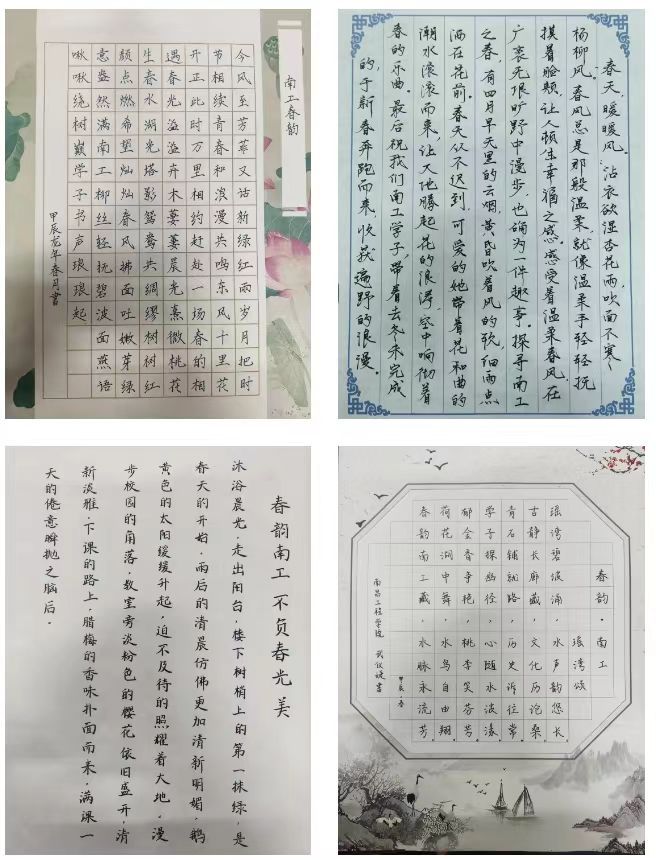 南工春韵
今风至芳草又话新绿红雨岁月把时
节相续青春和浪漫共鸣东风十里花
开正此时万里相约赶赴一场春的相
遇春光溢溢卉木萋萋晨光熹微桃花
生春水湖光塔影鸳鸯共绸缪树树红
颜点燃希望灿灿春风拂面吐嫩芽绿
意盎然满南工柳丝轻抚碧波面燕语
啾啾绕树巅学子书声琅琅起
甲辰龙年春月书
春天，暖暖风。“沾衣欲湿杏花雨，吹面不寒
杨柳风。”春风总是那般温柔，就像温柔手轻轻抚
摸着脸颊，让人顿生幸福之感。感受着温柔春风，在
广袤无垠旷野中漫步，也确为一件趣事。探寻南工
之春，有四月早天里的云烟，黄昏吹着风的软，细雨点
洒在花前。春天从不迟到，可爱的她带着花和曲的
潮水滚滚而来，让大地腾起花的浪涛，空中响彻着
春的乐曲。最后祝我们南工学子，带着去冬未完成
的，于新春奔跑而来，收获遍野的浪漫。
春韵南工 不负春光美
沐浴晨光，走出阳台，楼下树梢上的第一抹绿，是
春天的开始，雨后的清晨仿佛更加清新明媚，鹅
黄色的太阳缓缓升起，迫不及待的照耀着大地，漫
步校园的角落，教室旁淡粉色的樱花依旧盛开，清
新淡雅，下课的路上，腊梅的香味扑面而来，满课一
天的倦意瞬抛之脑后。
春韵·南工
瑶湾颂
瑶湾碧浪涌，水声韵悠长
古静长廊藏，文化历沧桑
青石铺就路，历史诉往常
学子探幽径，心随水波漾
郁金香争艳，桃李笑芬芳
荷花湖中舞，水鸟自由翔
春韵南工藏，水脉永流芳
甲辰·春
南昌工程学院 武仪婕书